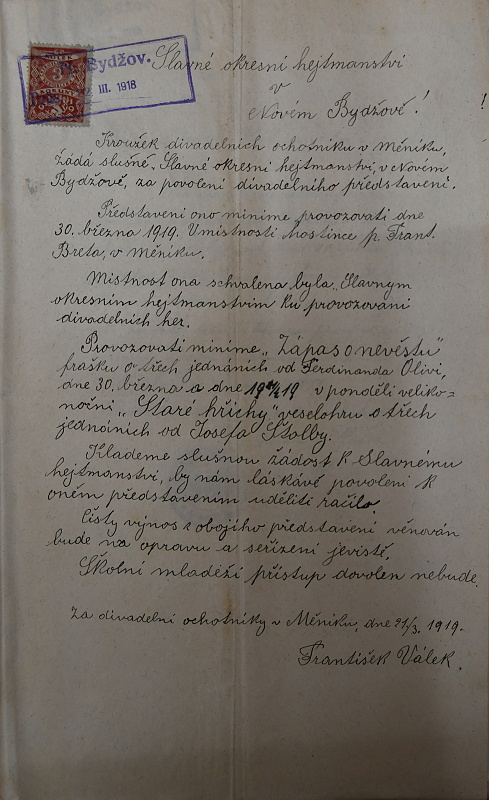 Bydžov.
III. 1918
Slavné okresní hejtmanství
v
Novém Bydžově!
Kroužek divadelních ochotníku v Měníku,
žádá slušně Slavné okresní hejtmanství, v Novém
Bydžově, za povolení divadelního představení.
Představení ono míníme provozovati dne
30. března 1919. V místnosti hostince p. Frant.
Breta, v Měníku.
Místnost ona schválena byla Slavným
okresním hejtmanstvím ku provozování
divadelních her.
Provozovati míníme „Zápas o nevěstu"
frašku o třech jednáních od Ferdinanda Olivi,
dne 30. března a dne 19 v pondělí veliko=
noční „Staré hříchy" veselohru o třech
jednáních od Josefa Štolby.
Klademe slušnou žádost k Slavnému
hejtmanství, by nám láskávé povolení k
oněm představením uděliti račilo.
Čistý výnos z obojího představení věnován
bude na opravu a seřízení jeviště.
Školní mládeži přístup dovolen nebude.
Za divadelní ochotníky v Měníku, dne 21/3. 1919.
František Válek.